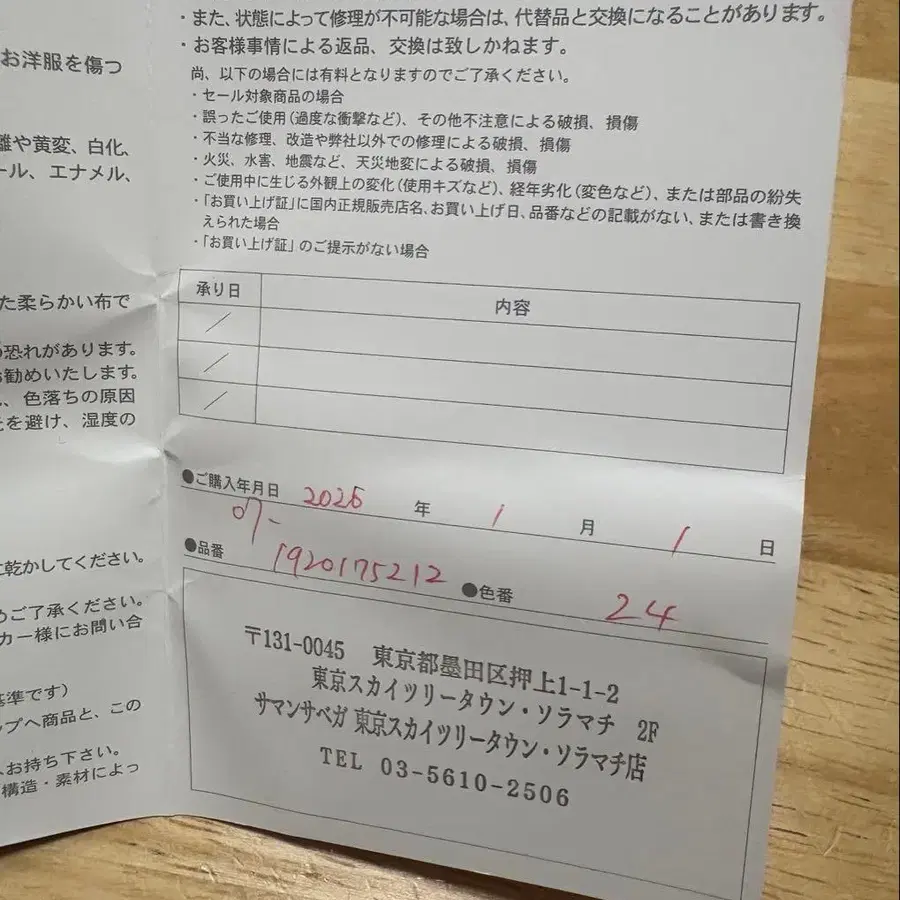 お洋服を傷つ
離や黄変、白化、
ール、エナメル、
た柔らかい布で
の恐れがあります。
お勧めいたします。
、色落ちの原因
を避け、湿度の
に乾かしてください。
めご了承ください。
カー様にお問い合
基準です)
ップへ商品と、この
お持ち下さい。
構造・素材によっ
・また、状態によって修理が不可能な場合は、代替品と交換になることがあります。
・お客様事情による返品、交換は致しかねます。
尚、以下の場合には有料となりますのでご了承ください。
・セール対象商品の場合
・誤ったご使用(過度な衝撃など)、その他不注意による破損、損傷
・不当な修理、改造や弊社以外での修理による破損、損傷
・火災、水害、地震など、天災地変による破損、損傷
・ご使用中に生じる外観上の変化(使用キズなど)、経年劣化(変色など)、または部品の紛失
・「お買い上げ証」に国内正規販売店名、お買い上げ日、品番などの記載がない、または書き換
えられた場合
・「お買い上げ証」のご提示がない場合
承り日 内容
／
／
／
●ご購入年月日 2026 年 1 月 1 日
07-
●品番 1920175212 ●色番 24
〒131-0045 東京都墨田区押上1-1-2
東京スカイツリータウン・ソラマチ 2F
サマンサベガ 東京スカイツリータウン・ソラマチ店
TEL 03-5610-2506